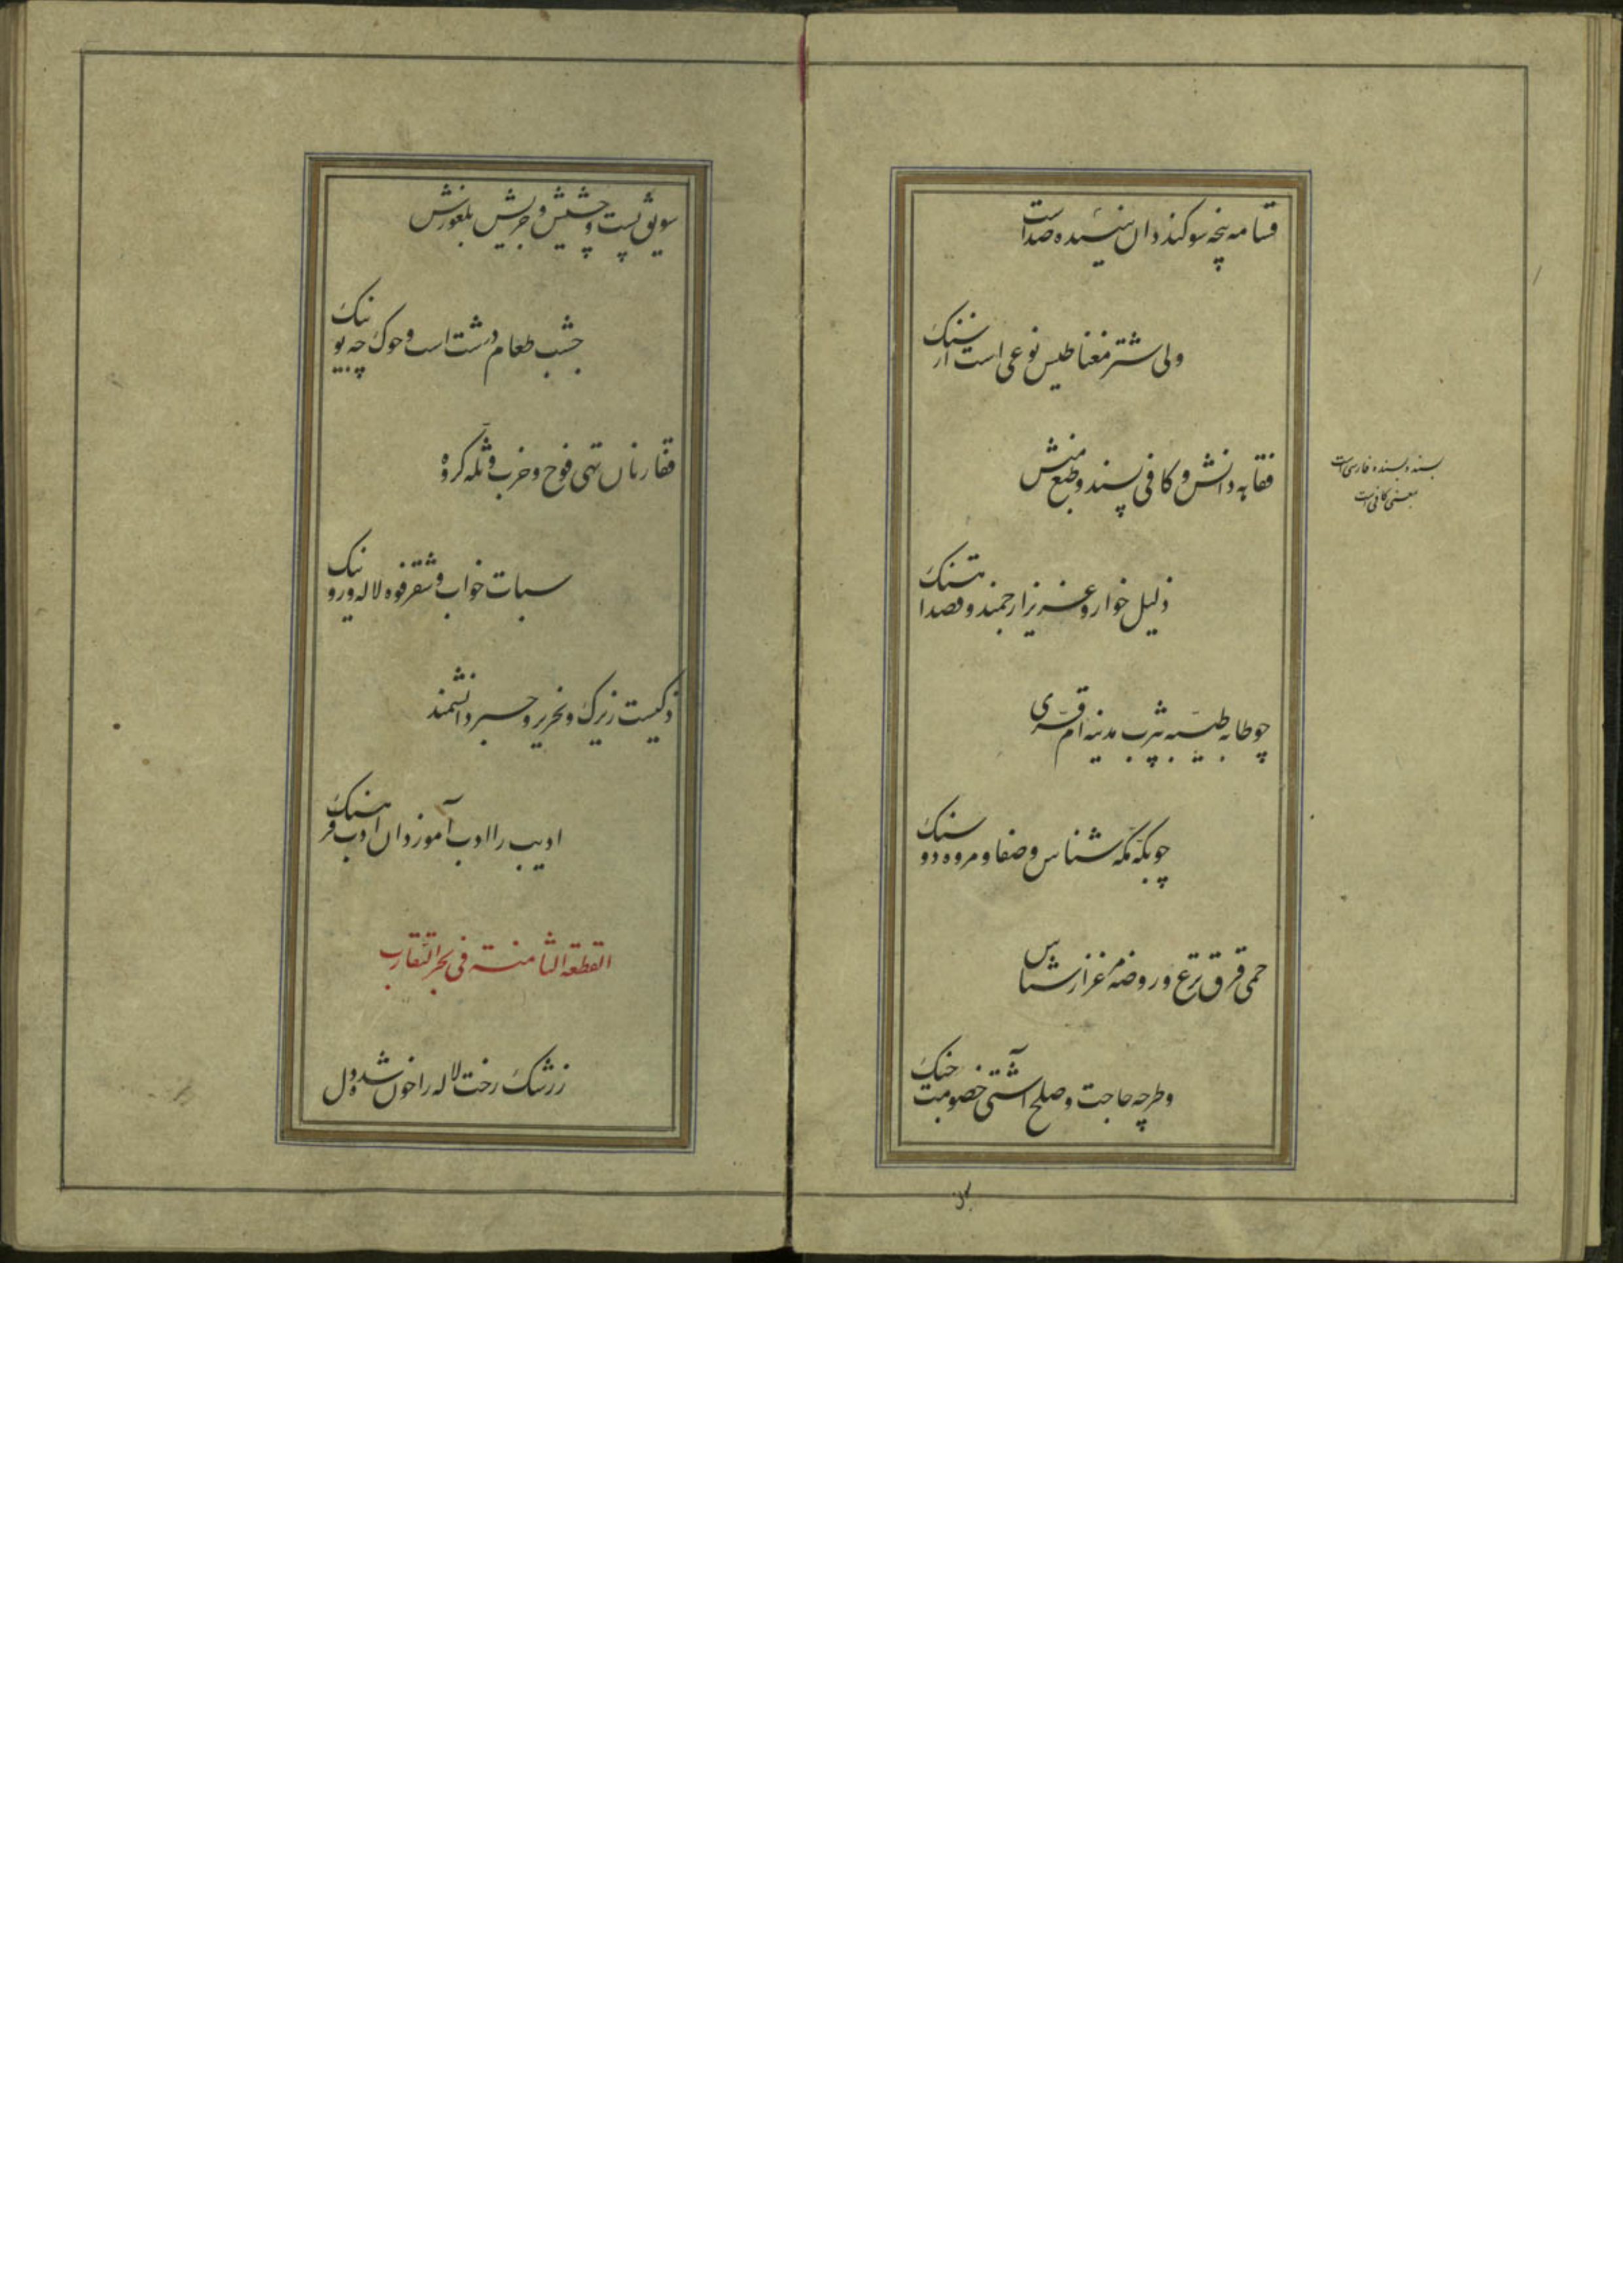 قسامه پنجه سوکند دان شنیده صداست
ولی شتر مغناطیس نوعی است از سنک
فقاهه دانش و کافی پسند و طبع منش
بسنده و بسنده فارسی است
بمعنی کافی است
ذلیل خوار و عزیز ارجمند و قصد آهنک
چو طابه طیبه یثرب مدینه ام قری
چو بکّه مکّه شناس و صفا و مروه دو سنک
حمی قرق ترع و روضه مرغزار شناس
وطر چه حاجت و صلح آشتی خصومت جنک
سویق پست و جشیش و جریش بلغورش
جشب طعام درشت است و حوک چه بیونیک
قفار نان تهی فوج و حزب و ثله کروه
سبات خواب و شقر فوه لاله و روینک
ذکیست زیرک و نحریر و حبر دانشمند
ادیب را ادب آموز دان ادب فرهنک
القطعه الثامنة فی بحر التقارب
ز رشک رخت لاله را خون شد و دل